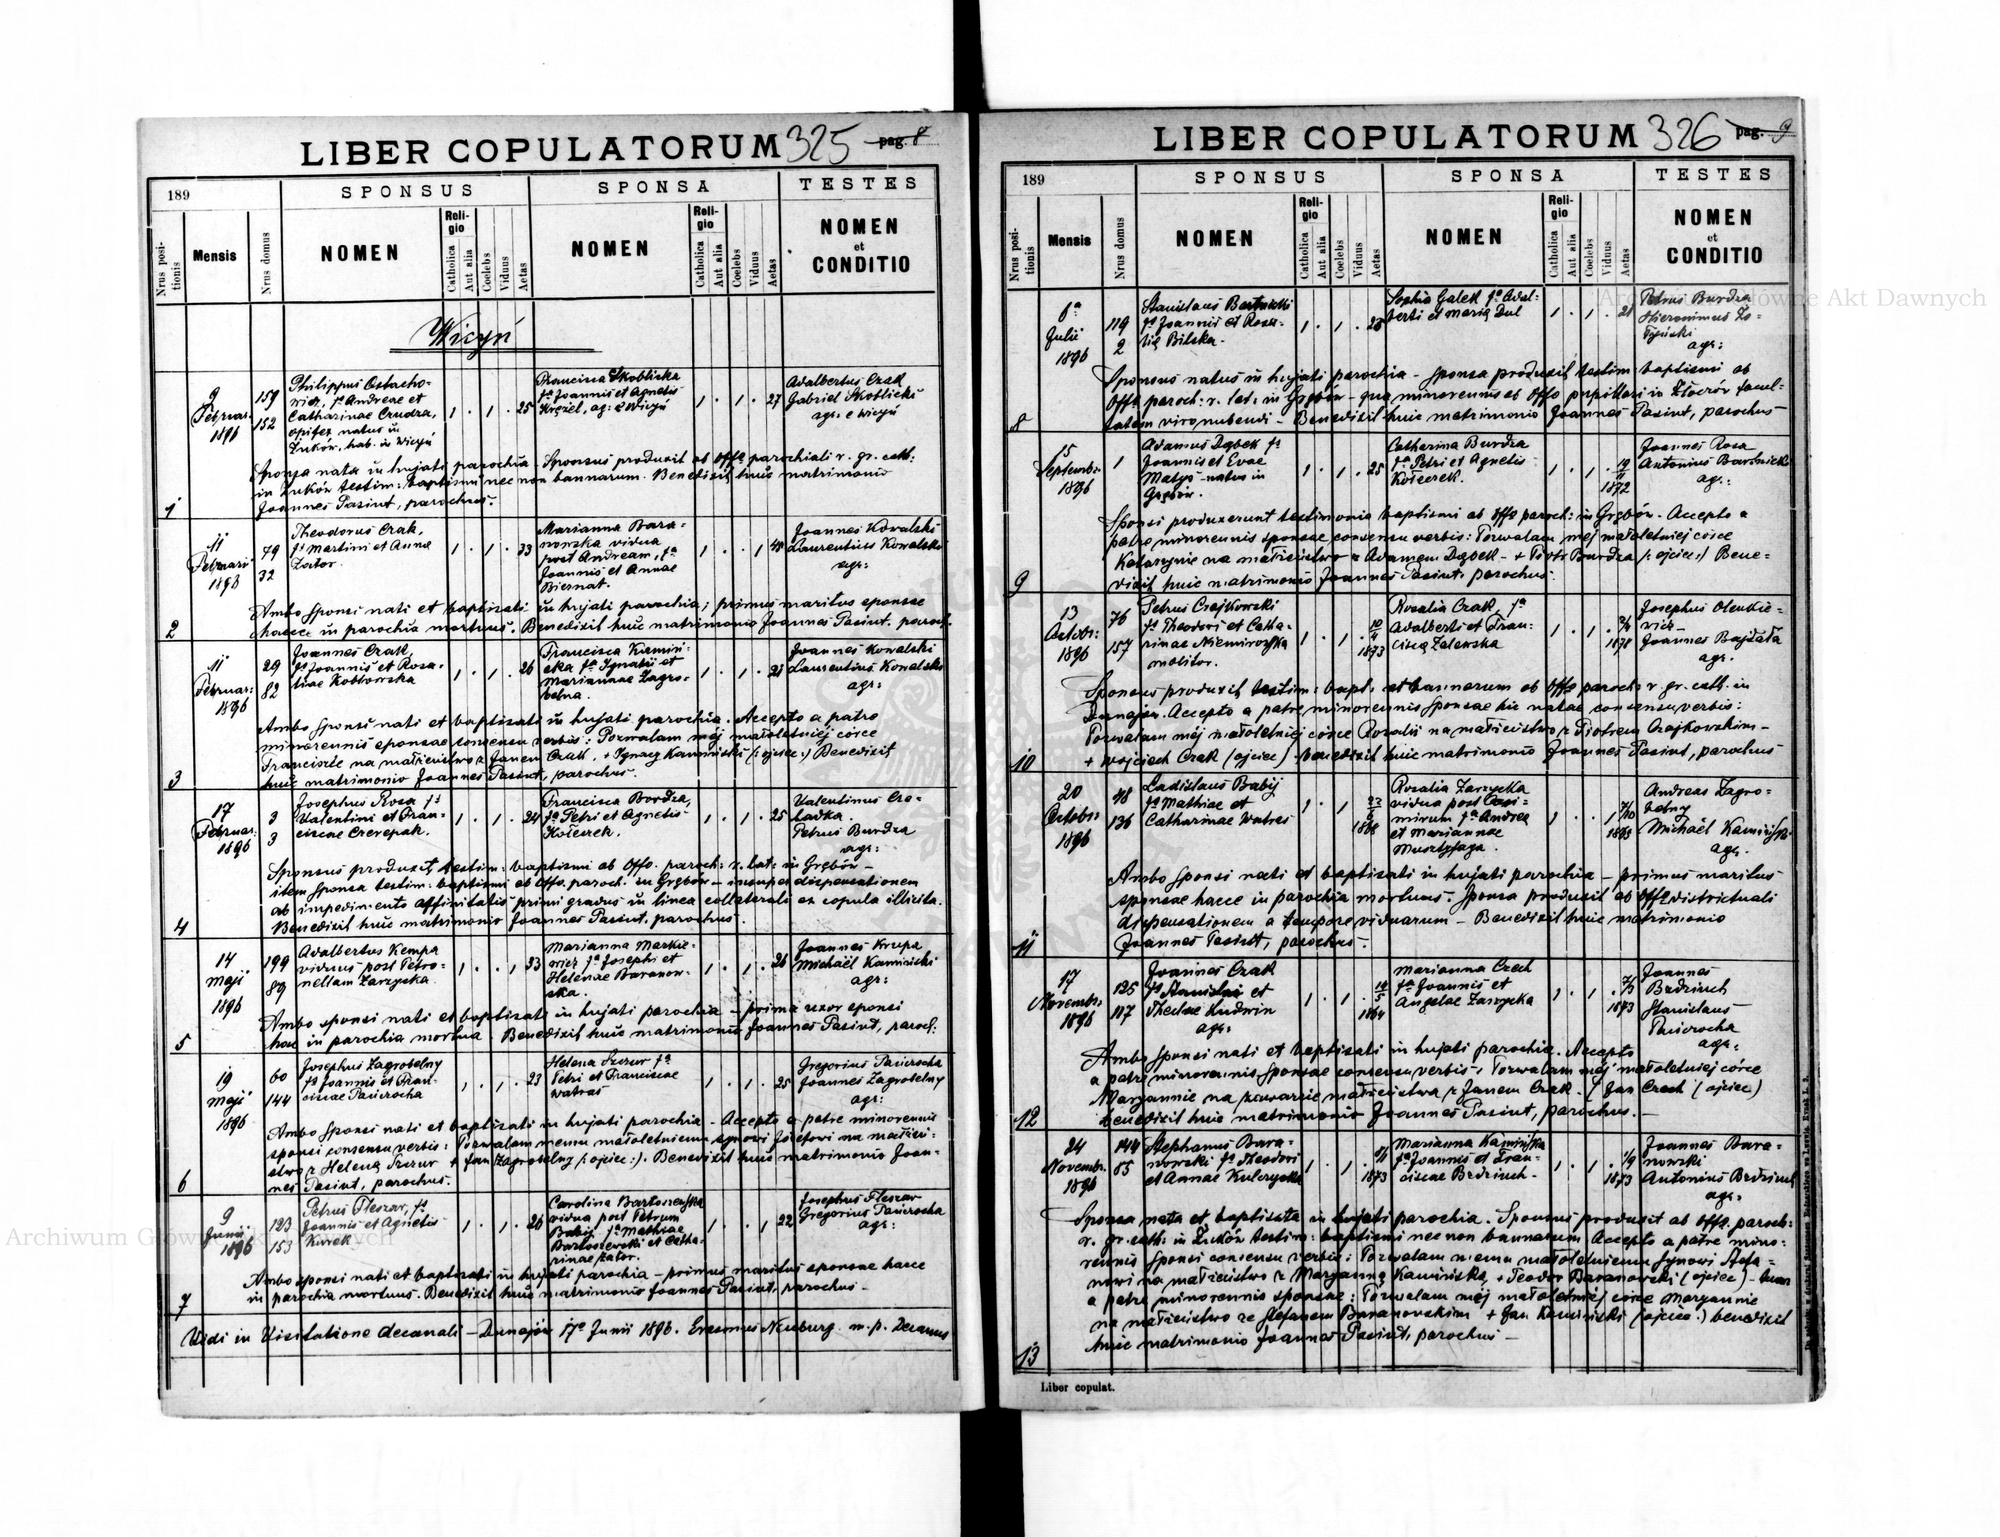 LIBER COPULATORUM 325 pag. 8
189
SPONSUS
SPONSA
TESTES
Nrus positionis
Mensis
Nrus domus
NOMEN
Religio
Catholica
Aut alia
Coelebs
Viduus
Aetas
NOMEN
Religio
Catholica
Aut alia
Coelebs
Viduus
Aetas
NOMEN
et
CONDITIO
Wicyń
1
9
Februar:
1896
159
152
Philippus Ostacho-
wicz, fs Andreae et
Catharinae Czudra,
opifex natus in
Żuków, hab. in Wicyń
1 . 1 . 25
Francisca Skoblicka
fa Joannis et Agnetis
ag: e Wicyń
1 . 1 . 27
Adalbertus Czak
Gabriel Skoblicki
agr. e Wicyń
Sponsa nata in hujati parochia. Sponsus produxit ab Offo parochiali r. gr. cath:
in Żuków testim: baptismi nec non bannarum. Benedixit huic matrimonio
Joannes Pasiut, parochus.
2
11
Februari
1896
79
32
Theodorus Czak,
fs Martini et Anna
Zator.
1 . 1 . 33
Marianna Bara-
nowska vidua
post Andream, fa
Joannis et Annae
Biernat.
1 . . 1 48
Joannes Kowalski
Laurentius Kowalski
agr:
Ambo sponsi nati et baptisati in hujati parochia; primus maritus sponsae
haece in parochia mortuus. Benedixit huic matrimonio Joannes Pasiut. paroch.
3
11
Februar:
1896
29
82
Joannes Czak,
fs Joannis et Rosa-
liae Kobłowska
1 . 1 . 26
Francisca Kamiń-
ska fa Ignatii et
Mariannae Zagro-
belna.
1 . 1 . 21
Joannes Kowalski
Laurentius Kowalski
agr:
Ambo sponsi nati et baptisati in hujati parochia. Accepto a patre
minorennis sponsae consensu verbis: Pozwalam mej małoletniej córce
Franciszce na małżeństwo z Janem Czak, + Ignacy Kamiński (: ojciec:) Benedixit
huic matrimonio Joannes Pasiut, parochus.
4
17
Februar:
1896
3
3
Josephus Rosa fs
Valentini et Fran-
ciscae Czerepak.
1 . 1 . 24
Francisca Bordza,
fa Petri et Agnetis
Kościerek.
1 . 1 . 25
Valentinus Cze-
ladka.
Petrus Burdza
agr:
Sponsus produxit testim: baptismi ab Offo. paroch: r. lat: in Grębów –
item Sponsa testim: baptismi ab Offo. paroch. in Grębów – insuper dispensationem
ab impedimento affinitatis primi gradus in linea collaterali ex copula illicita.
Benedixit huic matrimonio Joannes Pasiut. parochus.
5
14
Maji
1896
199
89
Adalbertus Kempa
viduus post Petro-
nellam Zarzycka.
1 . . 1 33
Marianna Markie-
wicz fa Josephi et
Helenae Baranow-
ska.
1 . 1 . 26
Joannes Krupa
Michaël Kamiński
agr:
Ambo sponsi nati et baptisati in hujati parochia – prima uxor sponsi
hac in parochia mortua. Benedixit huic matrimonio Joannes Pasiut, paroch:
6
19
Maji
1896
60
144
Josephus Zagrobelny
fs Joannis et Fran-
ciscae Paucrocha
1 . 1 . 23
Helena Szzur fa
Petri et Franciscae
Watras
1 . 1 . 25
Gregorius Paucrocha
Joannes Zagrobelny
agr:
Ambo sponsi nati et baptisati in hujati parochia – Accepto a patre minorennis
sponsi consensu verbis: Pozwalam memu małoletniemu synowi Józefowi na małżeń-
stwo z Heleną Szzur + Jan Zagrobelny (: ojciec:). Benedixit huic matrimonio Joan-
nes Pasiut, parochus.
7
9
Junii
1896
123
153
Petrus Fleszar, fs
Joannis et Agnetis
Kurek
1 . 1 . 26
Carolina Bartoszewska
vidua post Petrum
Babij fa Mathiae
Bartoszewski et Catha-
rinae Zator.
1 . . 1 22
Josephus Fleszar
Gregorius Paucrocha
agr:
Ambo sponsi nati et baptisati in hujati parochia – primus maritus sponsae haece
in parochia mortuus. Benedixit huic matrimonio Joannes Pasiut, parochus –
Vidi in Visitatione decanali – Dunajów 17o Junii 1896. Erasmus Neuburg m. p. Decanus
LIBER COPULATORUM 326 pag. 9
189
SPONSUS
SPONSA
TESTES
Nrus positionis
Mensis
Nrus domus
NOMEN
Religio
Catholica
Aut alia
Coelebs
Viduus
Aetas
NOMEN
Religio
Catholica
Aut alia
Coelebs
Viduus
Aetas
NOMEN
et
CONDITIO
8
Julii
1896
119
2
Stanislaus Bartnicki
fs Joannis et Rosa-
lię Bilska.
1 . 1 . 28
Sophia Galek fa Adal-
berti et Marię Dul
1 . 1 . 21
Petrus Burdza
Hieronimus
agr:
Sponsus natus in hujati parochia – Sponsa produxit testim: baptismi ab
Offo paroch: r. lat: in Grębów – qua minorennis ab Offo pupillari in Złoczów facul-
tatem viro nubendi – Benedixit huic matrimonio Joannes Pasiut, parochus –
9
15
Septemb:
1896
1
Adamus Dąbek fs
Joannis et Evae
Matys natus in
Grębów.
1 . 1 . 25
Catharina Burdza
fa Petri et Agnetis
Kościerek.
1 . 1 . 19/11
1872
Joannes Rosa
Antonius Bartnicki
ag:
Sponsi produxerunt testimonia baptismi ab Offo paroch: in Grębów. Accepto a
patre minorennis sponsae consensu verbis: Pozwalam mej małoletniej córce
Katarzynie na małżeństwo z Adamem Dąbek – + Piotr Burdza (: ojciec:) Bene-
dixit huic matrimonio Joannes Pasiut, parochus.
10
13
Octobr:
1896
76
157
Petrus Czajkowski
fs Theodori et Catha-
rinae Niemirowska
molitor.
1 . 1 . 10/4
1873
Rosalia Czak, fa
Adalberti et Fran-
ciscę Zalewska
1 . 1 .
1878
Josephus Olenkie-
wicz –
Joannes Bajdala
agr.
Sponsus produxit testim: bapt. et bannarum ab Offo paroch: r. gr. cath. in
Dunajów. Accepto a patre minorennis Sponsae hic natae consensu verbis:
Pozwalam mej małoletniej córce Rozalii na małżeństwo z Piotrem Czajkowskim –
+ Wojciech Czak (ojciec) benedixit huic matrimonio Joannes Pasiut, parochus
11
20
Octobr:
1896
48
136
Ladislaus Babij
fs Mathiae et
Catharinae Watras
1 . 1 .
1868
Rosalia Zarzycka
vidua post Casi-
mirum fa Andrea
et Mariannae
1 . . 1
Andreas Zagro-
belny
Michaël Kamiński
agr.
Ambo sponsi nati et baptisati in hujati parochia – primus maritus
sponsae haece in parochia mortuus. Sponsa produxit ab Offo districtuali
dispensationem a tempore viduarum – Benedixit huic matrimonio
Joannes Pasiut, parochus –
12
17
Novembr:
1896
125
117
Joannes Czak
fs Stanislai et
Theclae Kudwin
agr:
1 . 1 . 19/5
1864
Marianna Czech
fa Joannis et
Angelae Zarzycka
1 . 1 .
1873
Joannes
Bzdziuch
Stanislaus
Paucrocha
agr.
Ambo sponsi nati et baptisati in hujati parochia. Accepto
a patre minorennis Sponsae consensu verbis: Pozwalam mej małoletniej córce
Maryannie na zawarcie małżeństwa z Janem Czak. (Jan Czech (ojciec)
benedixit huic matrimonio Joannes Pasiut, parochus. –
13
24
Novembr.
1896
144
85
Stephanus Bara-
nowski fs Theodori
et Annae Kulczycka
1 . 1 .
1873
Marianna Kamińska
fa Joannis et Fran-
ciscae Bzdziuch –
1 . 1 . 1/9
1873
Joannes Bara-
nowski
Antonius Bzdziuch
agr.
Sponsa nata et baptizata in hujati parochia. Sponsus produxit ab Offo. paroch:
r. gr. cath: in Żuków testim: baptismi nec non bannarum Accepto a patre mino-
rennis sponsi consensu verbis: Pozwalam memu małoletniemu Synowi
na małżeństwo z Maryanną Kamińską + Teodor Baranowski (ojciec) –
a patre minorennis sponsae: Pozwalam mej małoletniej córce Maryannie
na małżeństwo ze Stefanem Baranowskim + Jan Kamiński (ojciec:) benedixit
huic matrimonio Joannes Pasiut, parochus –
Liber copulat.
Archiwum Główne Akt Dawnych
Archiwum Główne Akt Dawnych